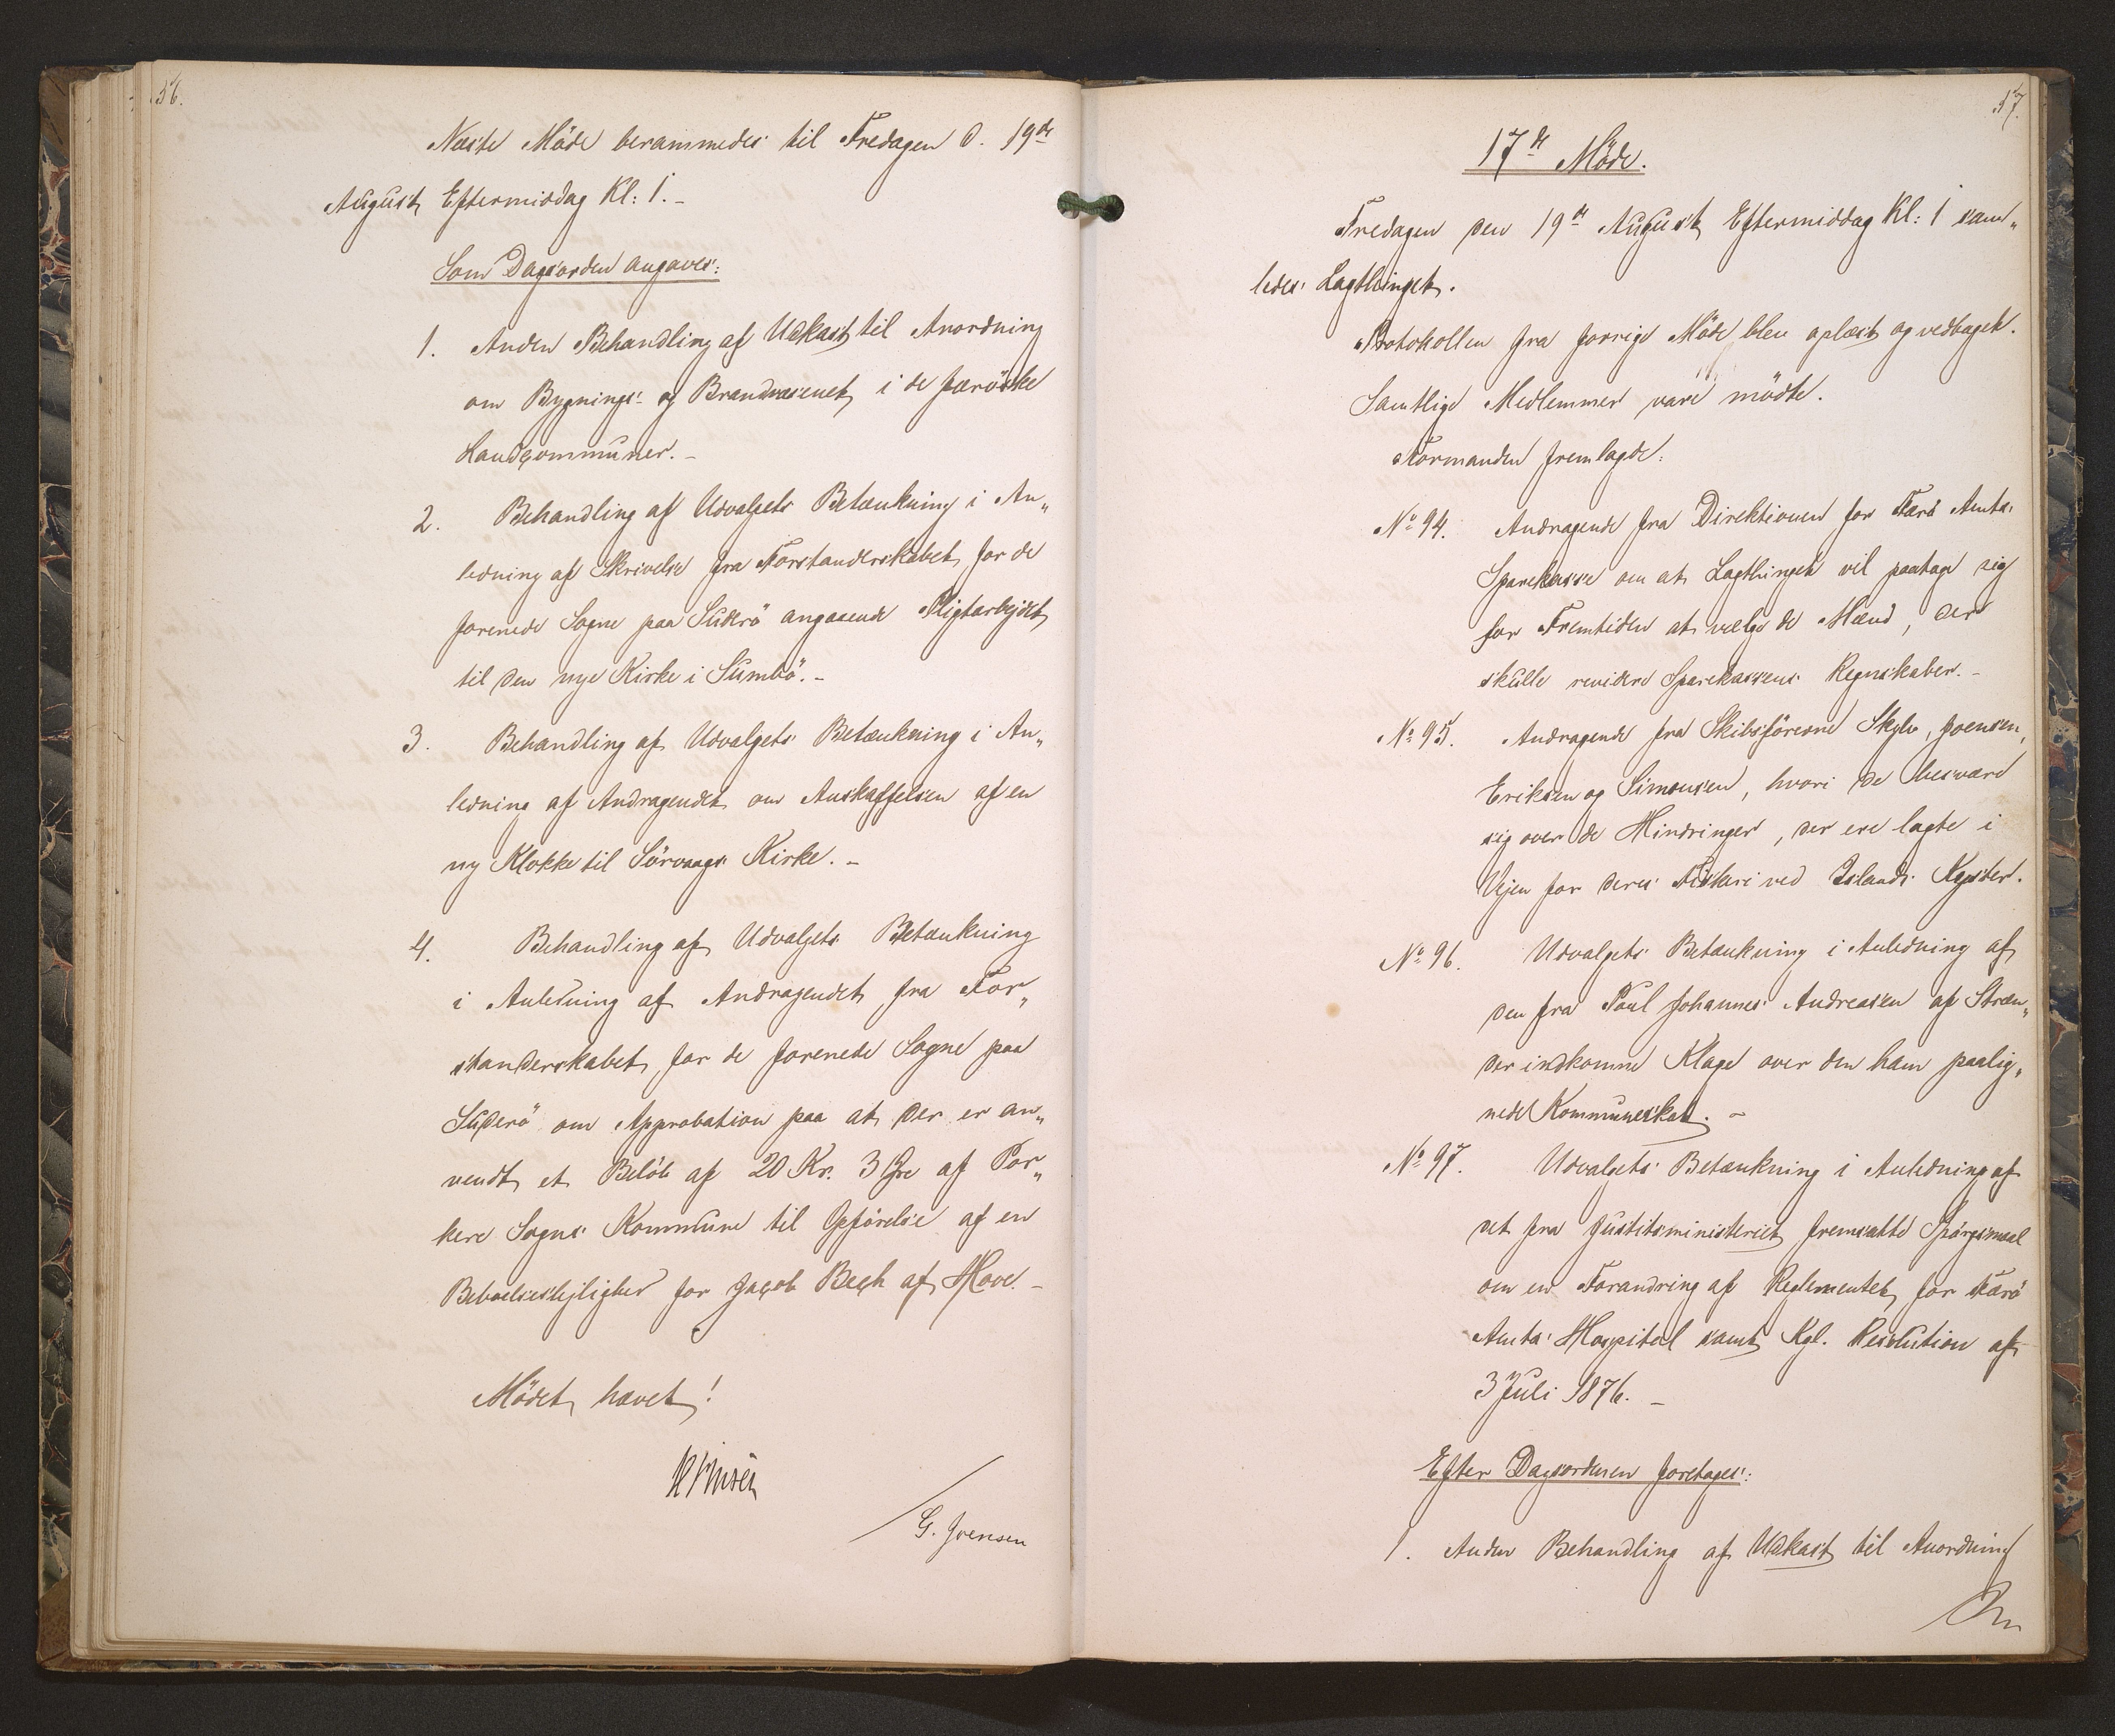 56.
Næste Möde berammedes til Fredagen d. 19de
August Eftermiddag Kl: 1. –
Som Dagsorden angaves:
1. Anden Behandling af Udkast til Anordning
om Bygnings- og Brandvæsenet i de færöske
Landcommuner. –
2. Behandling af Udvalgets Betænkning i An„
ledning af Skrivelse fra Forstanderskabet for de
forenede Sogne paa Suderö angaaende Pligtarbejdet
til den nye Kirke i Sumbö. –
3. Behandling af Udvalgets Betænkning i An„
ledning af Andragendet om Anskaffelsen af en
ny Klokke til Sörvaags Kirke. –
4. Behandling af Udvalgets Betænkning
i Anledning af Andragendet fra For„
standerskabet for de forenede Sogne paa
Suderö om Approbation paa at der er an„
vendt et Belöb af 20 Kr. 3 Öre af Por„
kere Sogns Kommune til Opförelse af en
Beboelseslejlighed for Jacob Bech af Hove. –
Mödet hævet!
G. Joensen
57.
17de Möde.
Fredagen den 19de August Eftermiddag Kl: 1 sam„
ledes Lagthinget.
Protokollen fra forrige Möde blev oplæst og vedtaget.
Samtlige Medlemmer vare mödte.
Formanden fremlagde:
No 94. Andragende fra Direktionen for Færö Amts
Sparekasse om at Lagthinget vil paatage sig
for Fremtiden at vælge de Mænd, der
skulle revidere Sparekassens Regnskaber. –
No 95. Andragende fra Skibsförerne Skylv, Joensen,
Eriksen og Simonsen, hvori de besvære
sig over de Hindringer, der ere lagte i
Vejen for deres Fiskeri ved Islands Kyster.
No 96. Udvalgets Betænkning i Anledning af
den fra Poul Johannes Andreasen af Stræn„
der indkomne Klage over den ham paalig„
nede Kommuneskat. –
No 97. Udvalgets Betænkning i Anledning af
det fra Justitsministeriet fremsatte Spörgsmaal
om en Forandring af Reglementet for Færö
Amts Hospital samt Kgl. Resolution af
3 Juli 1876. –
Efter Dagsordenen foretages:
1. Anden Behandling af Udkast til Anordning
Om